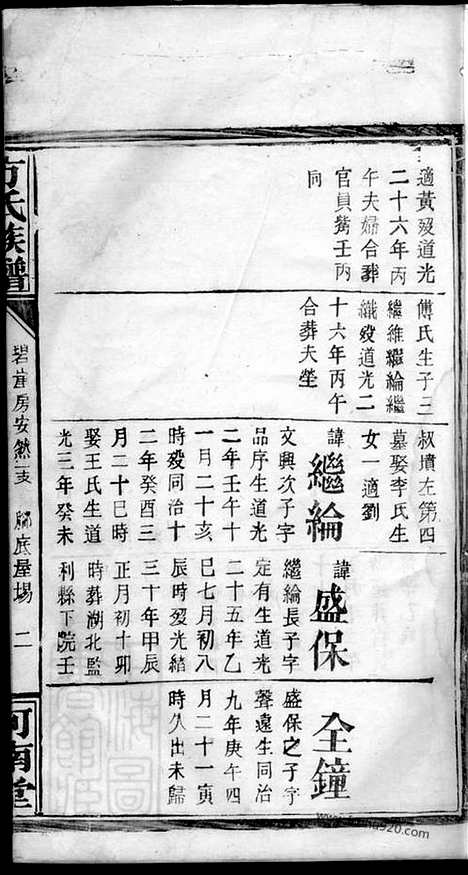 適黃歿道光
二十六年丙
午夫婦合葬
官員觜壬丙
同
傅氏生子三
繼維繼綸繼
纖歿道光二
十六年丙午
合葬夫塋
叔墳左第四
墓娶李氏生
女一適劉
諱繼綸
文興次子字
品序生道光
二年壬午十
一月二十亥
時歿同治十
二年癸酉三
月二十巳時
娶王氏生道
光三年癸未
諱盛保
繼綸長子字
定有生道光
二十五年乙
巳七月初八
辰時歿光緒
三十年甲辰
正月初十卯
時葬湖北監
利縣下院壬
全鐘
盛保之子字
聲遠生同治
九年庚午四
月二十一寅
時久出未歸
方氏族譜
房安
底屋場
二
河南堂